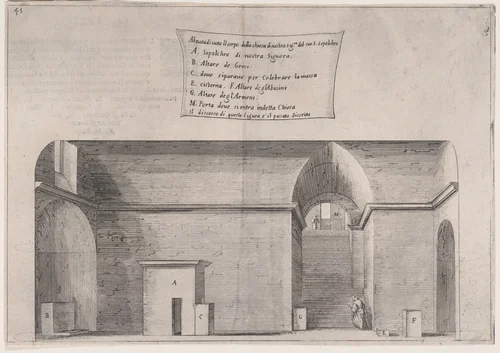 41
Alzato di tutto il corpo della chiesa di nostra sig.ra del suo S. sepolchro
A. Sepolchro di nostra Signora.
B. Altare de Greci
C. doue si parano per Celebrare la messa
E. cisterna. F. Altare degl'Abissini
G. Altare degl'Armeni.
M. Porta doue si entra in detta Chiesa
il discorso di questa figura e il passato discorso
M
A
B
C
G
F